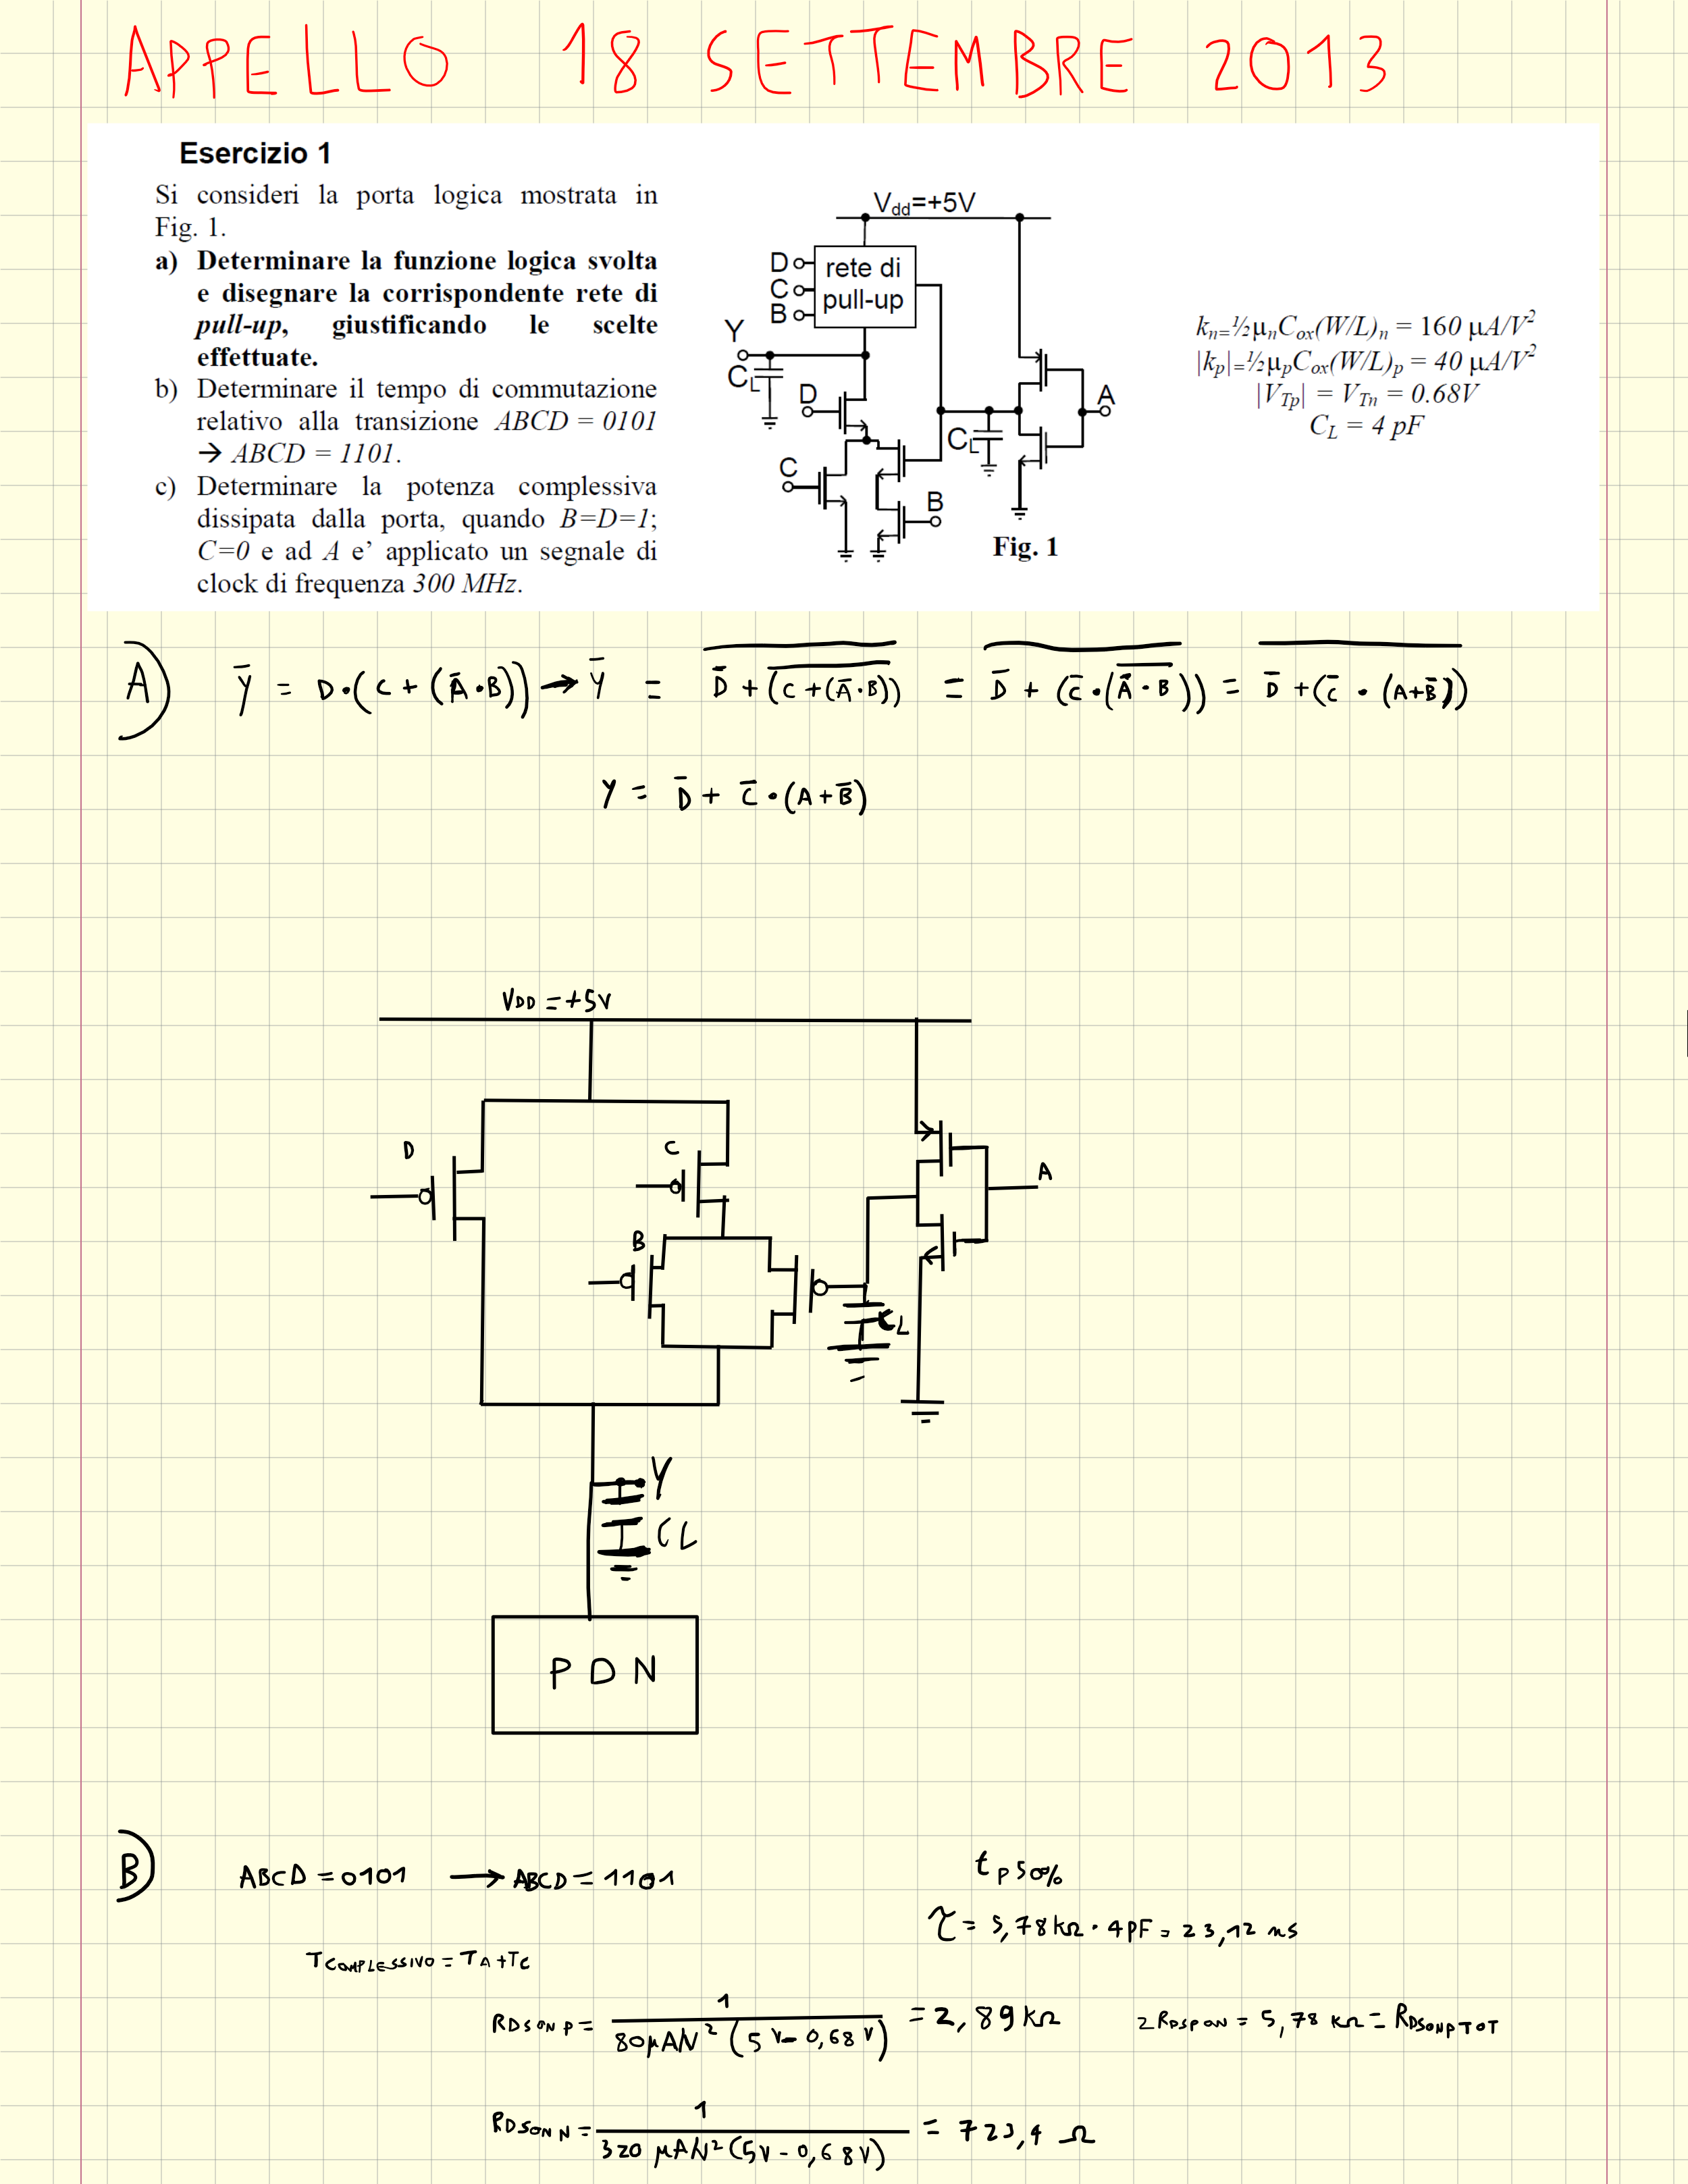 APPELLO 18 SETTEMBRE 2013
Esercizio 1
Si consideri la porta logica mostrata in
Fig. 1.
a) Determinare la funzione logica svolta
e disegnare la corrispondente rete di
pull-up, giustificando le scelte
effettuate.
b) Determinare il tempo di commutazione
relativo alla transizione ABCD = 0101
→ ABCD = 1101.
c) Determinare la potenza complessiva
dissipata dalla porta, quando B=D=1;
C=0 e ad A e' applicato un segnale di
clock di frequenza 300 MHz.
Vdd=+5V
D
C
B
rete di
pull-up
Y
CL
D
C
CL
A
B
Fig. 1
kn=½μnCox(W/L)n = 160 μA/V²
|kp|=½μpCox(W/L)p = 40 μA/V²
|VTp| = VTn = 0.68V
CL = 4 pF
A) Y̅ = D·(C + (A̅·B)) → Y̅ = \overline{D̅ + \overline{(C + (A̅·B))}} = \overline{D̅ + (C̅·(\overline{A̅·B}))} = \overline{D̅ + (C̅·(A+B̅))}
Y = D̅ + C̅·(A+B̅)
VDD = +5V
D
C
A
B
CL
Y
CL
PDN
B) ABCD = 0101 → ABCD = 1101
tp50%
τ = 5,78kΩ · 4pF = 23,12 ns
TCOMPLESSIVO = TA + TC
RDSONP = 1 / 80μA/V² (5V - 0,68V) = 2,89 kΩ
2RDSPON = 5,78 kΩ = RDSONPTOT
RDSONN = 1 / 320 μA/V² (5V - 0,68V) = 723,4 Ω